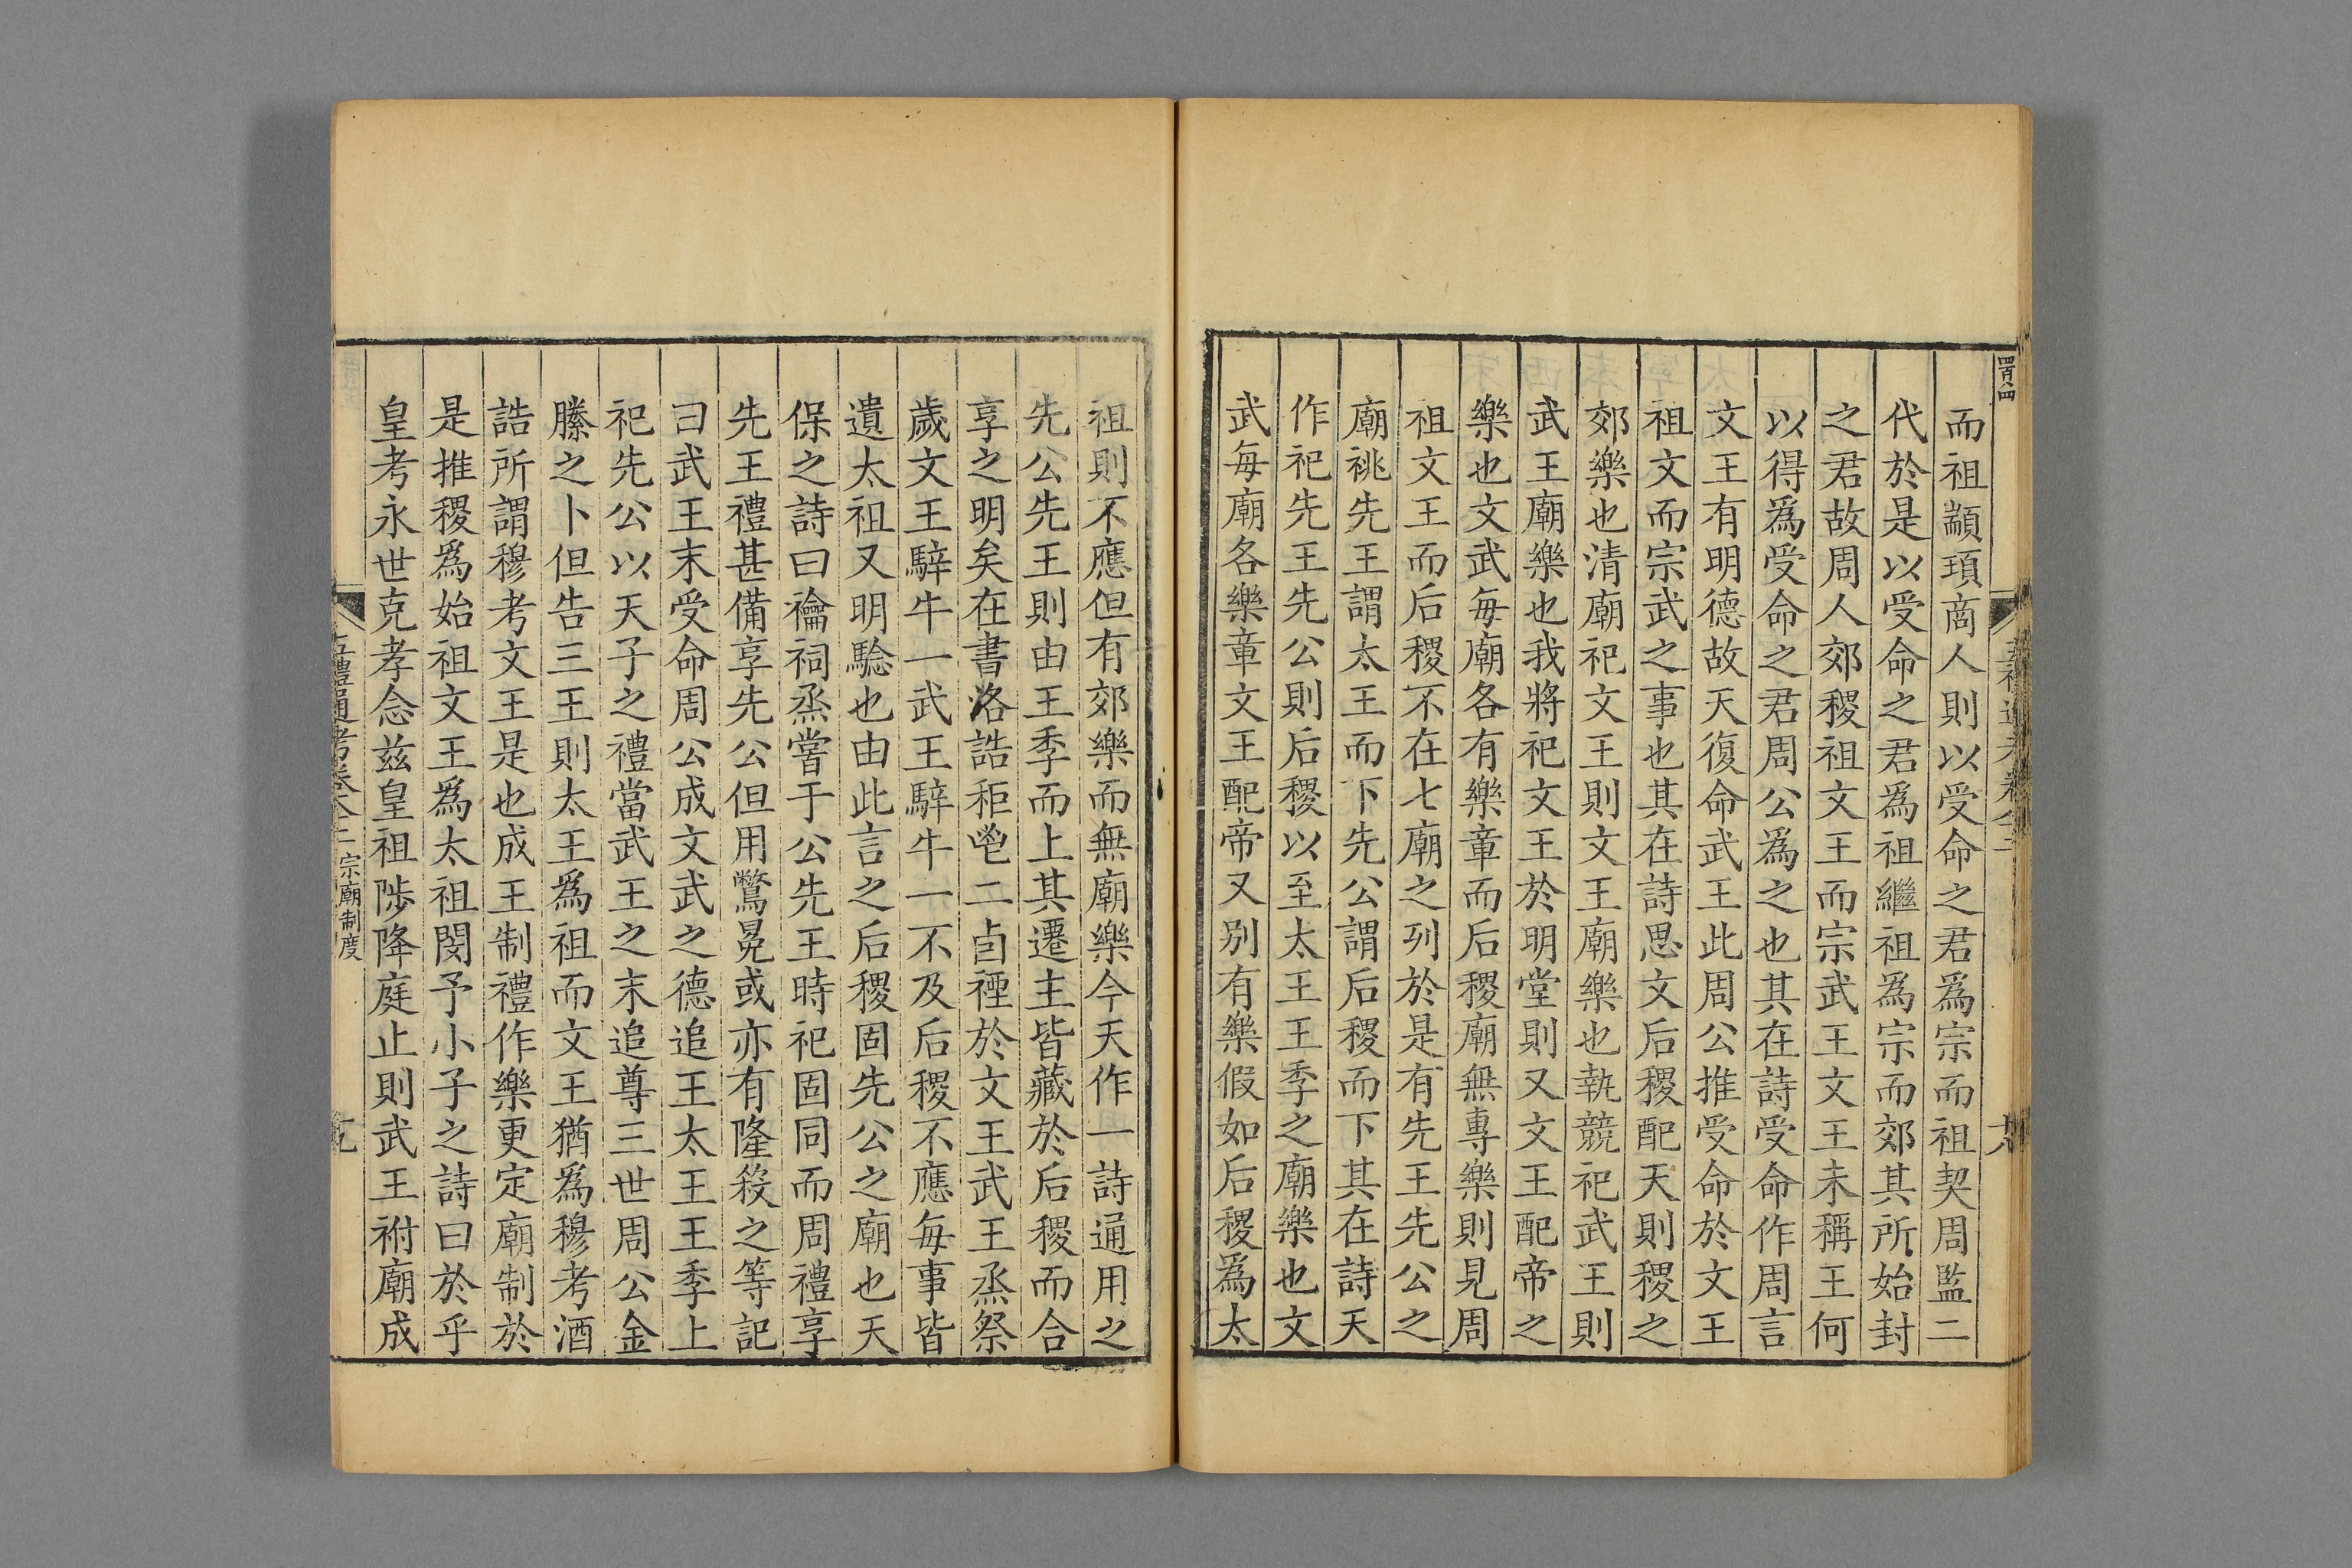 而祖顓頊商人則以受命之君爲宗而祖契周監二
代於是以受命之君爲祖繼祖爲宗而郊其所始封
之君故周人郊稷祖文王而宗武王文王未稱王何
以得爲受命之君周公爲之也其在詩受命作周言
文王有明德故天復命武王此周公推受命於文王
祖文而宗武之事也其在詩思文后稷配天則稷之
郊樂也清廟祀文王則文王廟樂也執競祀武王則
武王廟樂也我將祀文王於明堂則又文王配帝之
樂也文武每廟各有樂章而后稷廟無專樂則見周
祖文王而后稷不在七廟之列於是有先王先公之
廟祧先王謂太王而下先公謂后稷而下其在詩天
作祀先王先公則后稷以至太王王季之廟樂也文
武每廟各樂章文王配帝又别有樂假如后稷爲太
祖則不應但有郊樂而無廟樂今天作一詩通用之
先公先王則由王季而上其遷主皆藏於后稷而合
享之明矣在書洛誥秬鬯二卣禋於文王武王烝祭
歲文王騂牛一武王騂牛一不及后稷不應每事皆
遺太祖又明驗也由此言之后稷固先公之廟也天
保之詩曰禴祠烝嘗于公先王時祀固同而周禮享
先王禮甚備享先公但用鷩冕或亦有隆殺之等記
曰武王末受命周公成文武之德追王太王王季上
祀先公以天子之禮當武王之末追尊三世周公金
縢之卜但告三王則太王爲祖而文王猶爲穆考酒
誥所謂穆考文王是也成王制禮作樂更定廟制於
是推稷爲始祖文王爲太祖閔予小子之詩曰於乎
皇考永世克孝念兹皇祖陟降庭止則武王祔廟成
五禮通考卷 宗廟制度